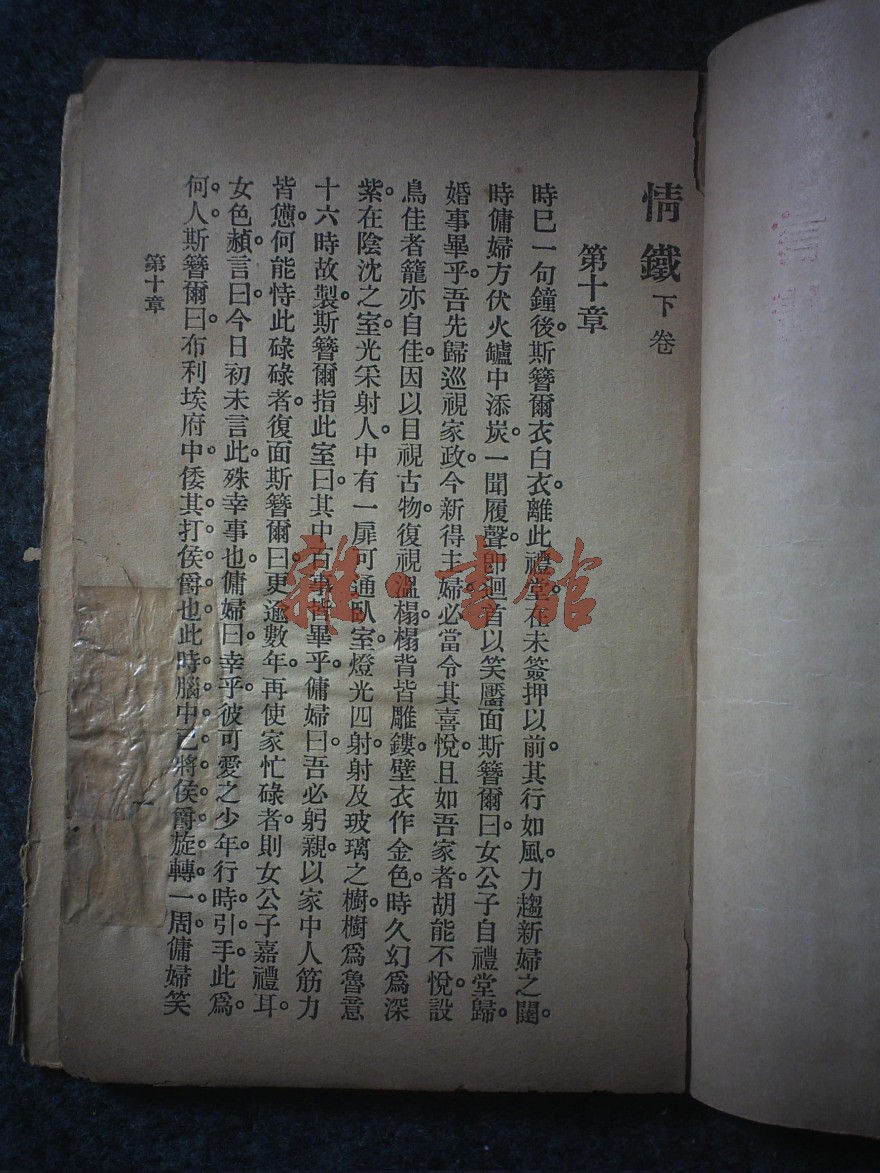 情鐵下卷
第十章
時巳一句鐘後。斯簪爾衣白衣。離此禮堂。在未簽押以前。其行如風。力趨新婦之闥。
時傭婦方伏火鑪中添炭。一聞履聲。即迴首以笑靨面斯簪爾曰。女公子自禮堂歸。
婚事畢乎。吾先歸巡視家政。今新得主婦。必當令其喜悅。且如吾家者。胡能不悅。設
鳥佳者籠亦自佳。因以目視古物。復視溫榻。榻背皆雕鏤。壁衣作金色。時久幻爲深
紫。在陰沈之室。光采射人。中有一扉可通臥室。燈光四射。射及玻璃之櫥。櫥爲魯意
十六時故製。斯簪爾指此室曰。其中百事皆畢乎。傭婦曰。吾必躬親。以家中人筋力
皆憊。何能恃此碌碌者。復面斯簪爾曰。更逾數年。再使家忙碌者。則女公子嘉禮耳。
女色赬。言曰。今日初未言此殊幸事也。傭婦曰。幸乎。彼可愛之少年。行時引手。此爲
何人。斯簪爾曰。布利埃府中倭其打侯爵也。此時腦中已將侯爵旋轉一周。傭婦笑
第十章
雜·書館